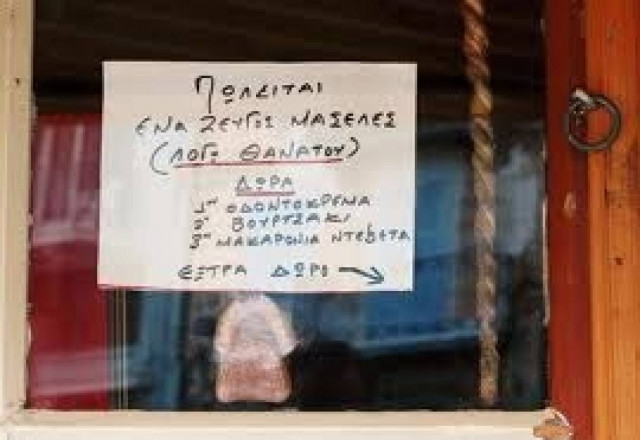 Πωλειται
ενα ζευγος μασελες
(λογω θανατου)
Δωρα
1ον οδοντοκρεμα
2ο βουρτσακι
3ον μακαρονια ντεβετα
εξτρα δωρο →